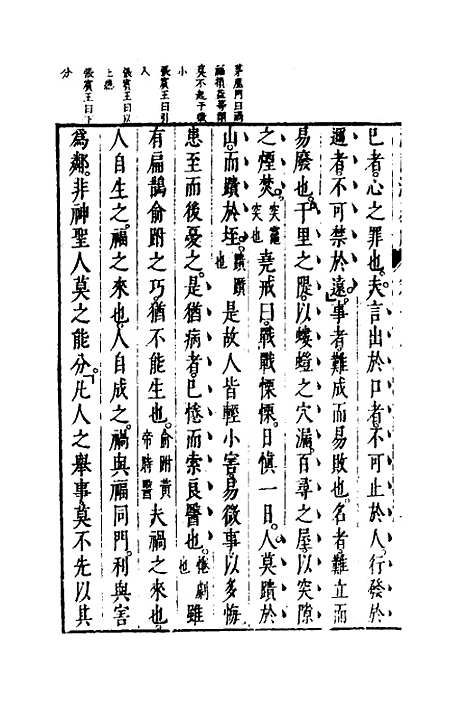 已者心之罪也夫言出於口者不可止於人行發於
邇者不可禁於遠事者難成而易敗也名者難立而
易廢也千里之隄以螻螘之穴漏百尋之屋以突隙
之煙焚突竈突也堯戒曰戰戰慄慄日慎一日人莫蹪於
山而蹪於垤蹪躓也是故人皆輕小害易微事以多悔
患至而後憂之是猶病者已惓而索良醫也惓劇也雖
有扁鵲俞跗之巧猶不能生也俞跗黃帝時醫夫禍之來也
人自生之福之來也人自成之禍與福同門利與害
為鄰非神聖人莫之能分凡人之舉事莫不先以其
茅鹿門曰禍
莫不起于微
小
張賓王曰引
入
張賓王曰以
上總
張賓王曰下
分